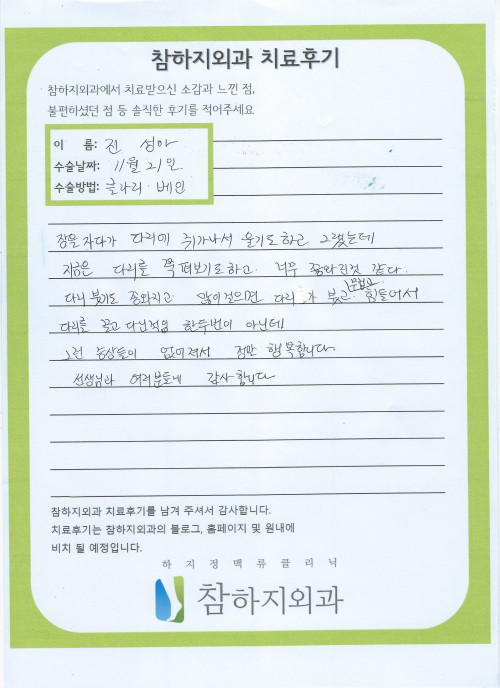 참하지외과 치료후기
참하지외과에서 치료받으신 소감과 느낀 점,
불편하셨던 점 등 솔직한 후기를 적어주세요
이 름: 진 성아
수술날짜: 11월 21일
수술방법: 클라리·베인
잠을 자다가 다리에 쥐가나서 울기도하고 그랬는데
지금은 다리를 쭉 펴보기도하고 너무 좋아진것 같다.
다리 붓기도 좋아지고 많이 걷으면 다리가 붓고 힘들어서
다리를 끌고 다닌적임 한두번이 아닌데
그런 증상들이 없어져서 정말 행복합니다.
선생님과 여러분들께 감사합니다
참하지외과 치료후기를 남겨 주셔서 감사합니다.
치료후기는 참하지외과의 블로그, 홈페이지 및 원내에
비치 될 예정입니다.
하지정맥류클리닉
참하지외과